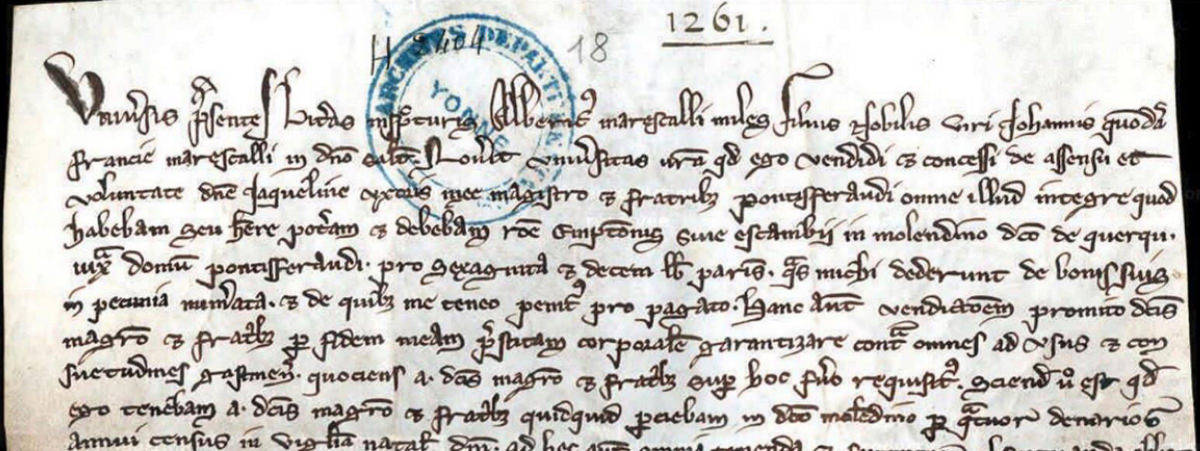 1261.
H 2404 18
ARCHIVES DEPARTEMENTALES YONNE
Univ'sis p'sentes litt'as inspecturis Albericus marescalli miles filius nobilis viri Johannis quonda'
Francie marescalli in d'no salt'. Nov'it univ'sitas v'ra qd ego vendidi & concessi de assensu et
voluntate d'ne Jaqueline uxoris mee magistro & fratrib' pontisferrandi omne illud integre quod
habebam seu h'ere pot'am & debebam r'one emptionis sive escambii in molendino d'co de querqu.
iuxta domu' pontisferrandi. pro sexaginta & decem lb' paris'. q'as michi dederunt de bonis suis
in pecunia num'ata. & de quib' me teneo penit' pro pagato. Hanc aut' vendic'oem promitto d'cis
mag'ro & fr'ib' p' fidem meam p'stitam corporale' garantizare cont'a omnes ad usus & con
suetudines gastinen'. quociens a d'cis mag'ro & fr'ib' sup' hoc fu'o requisit'. Sciend' v'o est qd
ego tenebam a d'cis mag'ro & fr'ib' quidquid p'ciebam in d'co moledino p' q'tuor denarios
annui census in vigilia natal' d'ni. ad hec